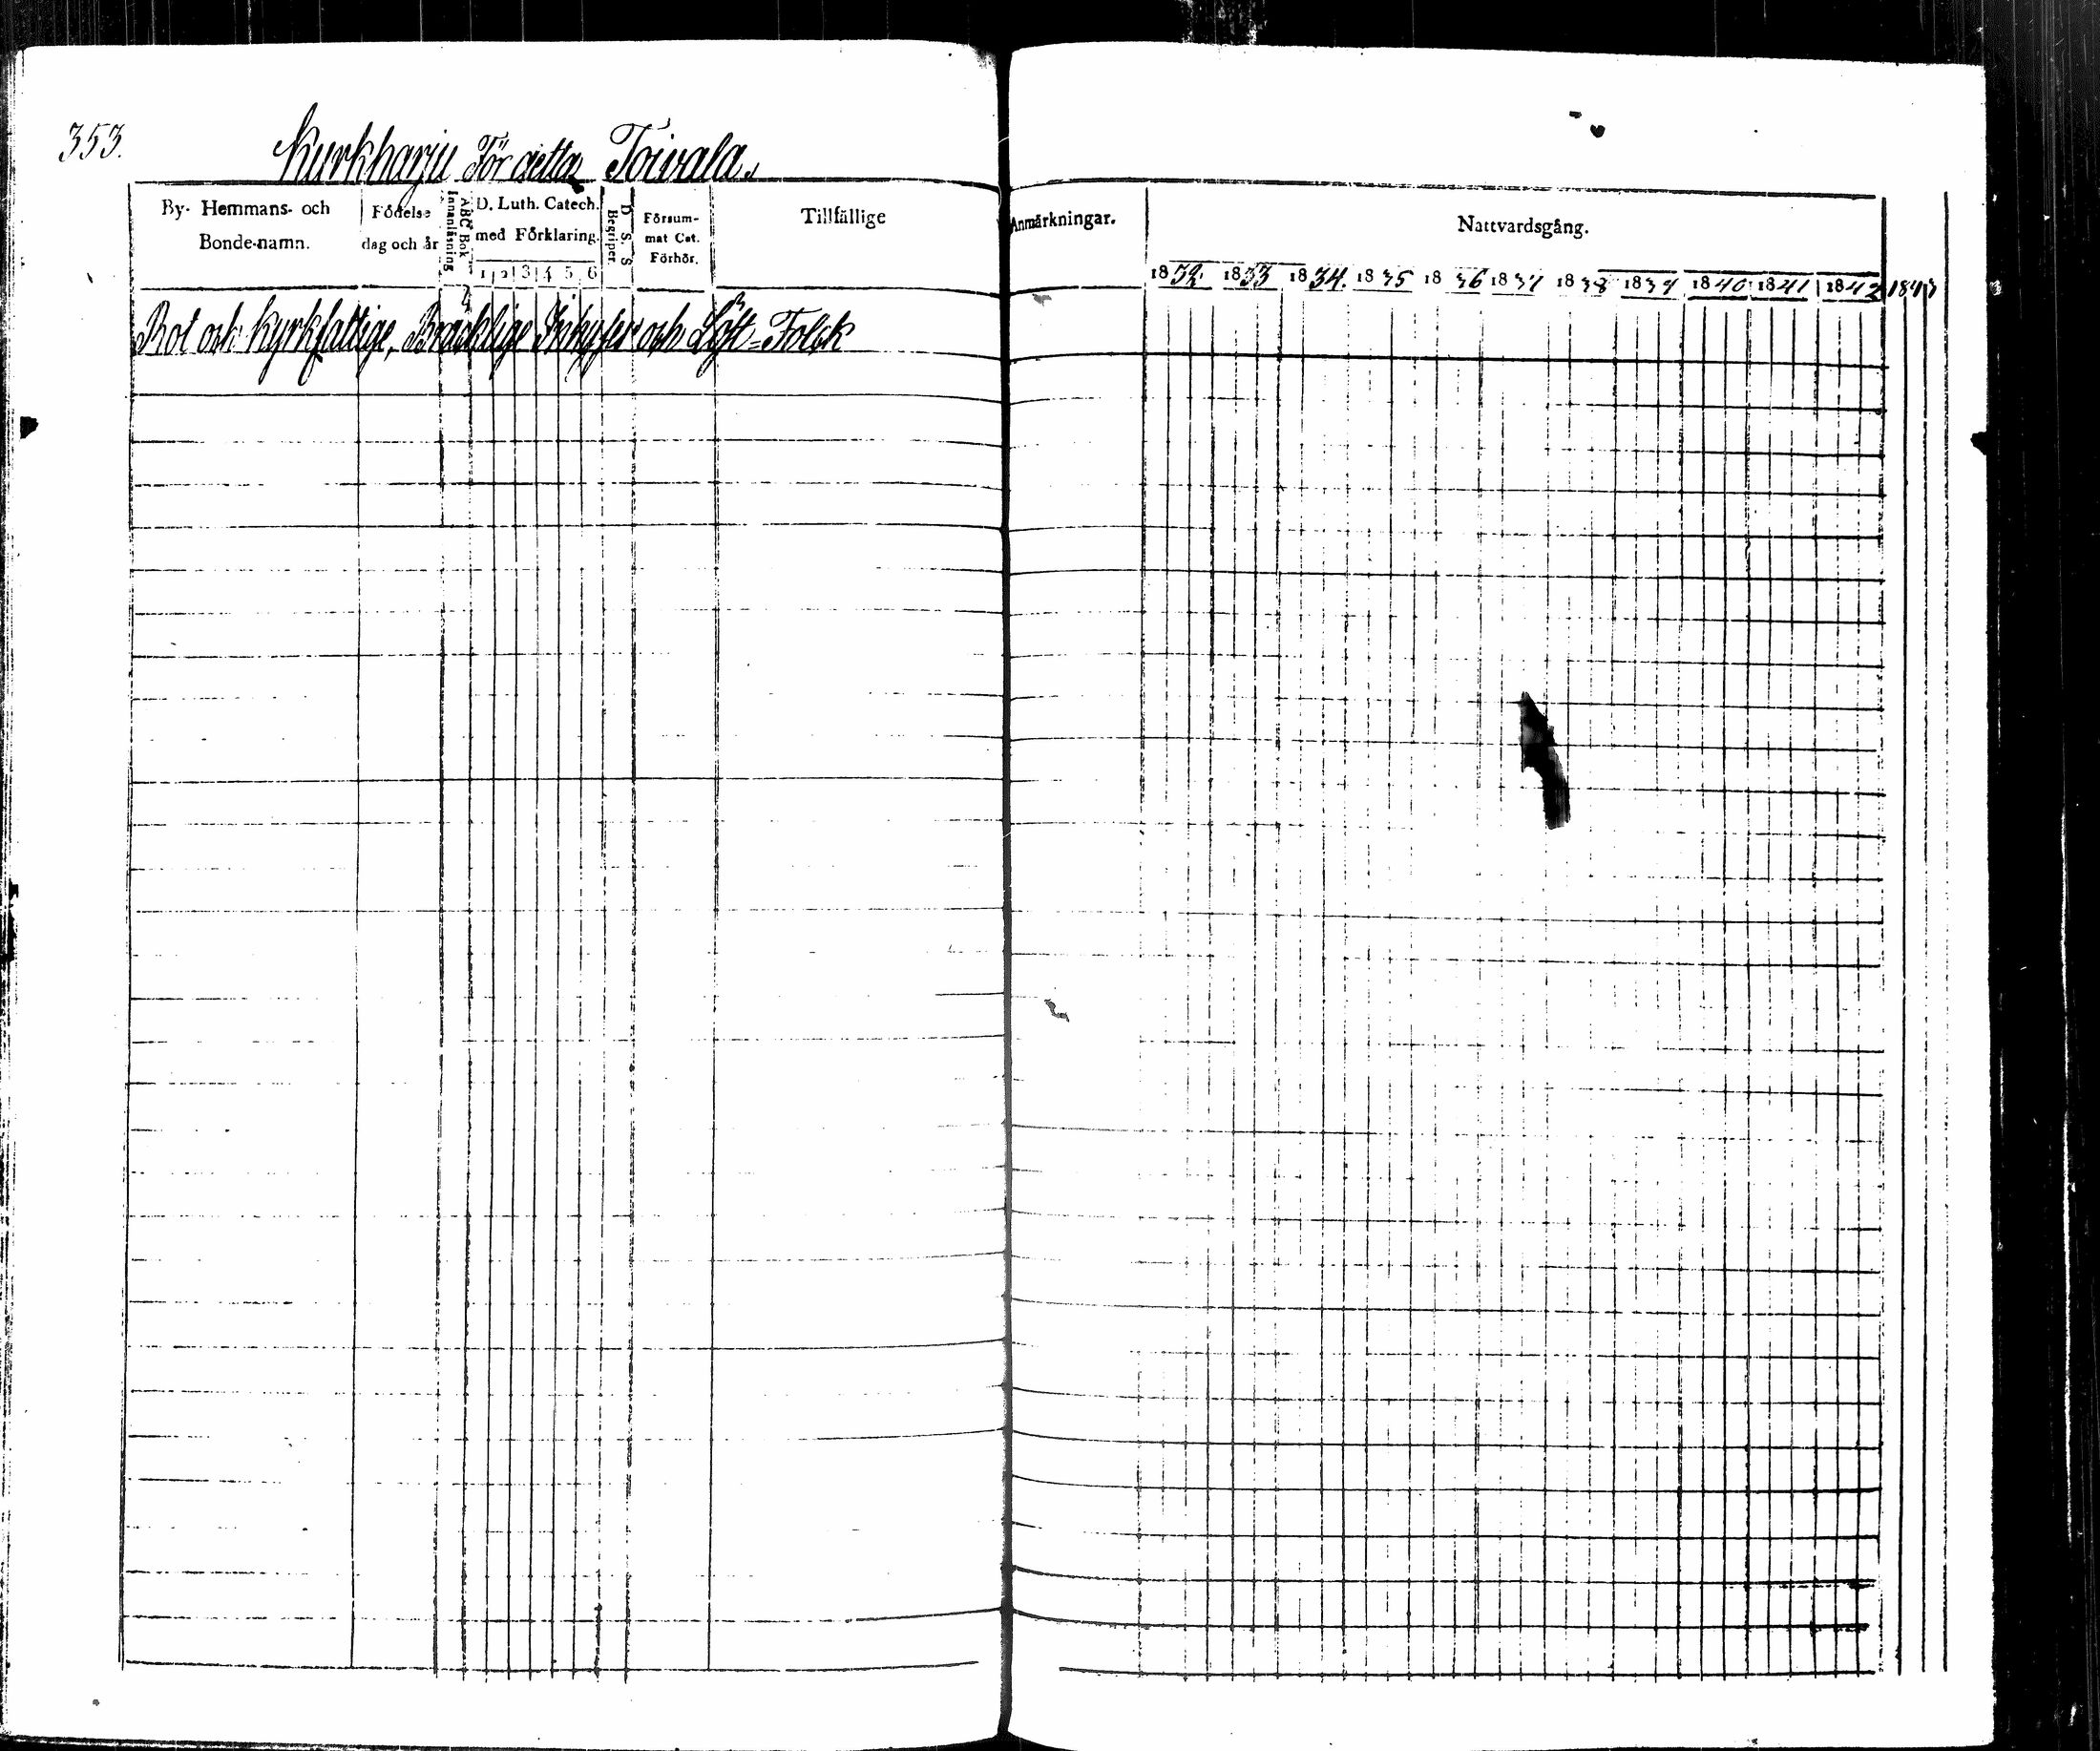 353.
Kurkharju För detta Toivala.
By- Hemmans- och Bonde-namn.
Födelse dag och år
Innanläsning
ABC Bok
D. Luth. Catech. med Förklaring.
1 2 3 4 5 6
Begriper.
D. S. S
Försum-mat Cat. Förhör.
Tillfällige
Anmärkningar.
Nattvardsgång.
1832. 1833 1834. 1835 1836 1837 1838 1839 1840 1841 1842 1843
Rot och Kyrkfattige, Bräcklige Inhyses och Löst-Folck